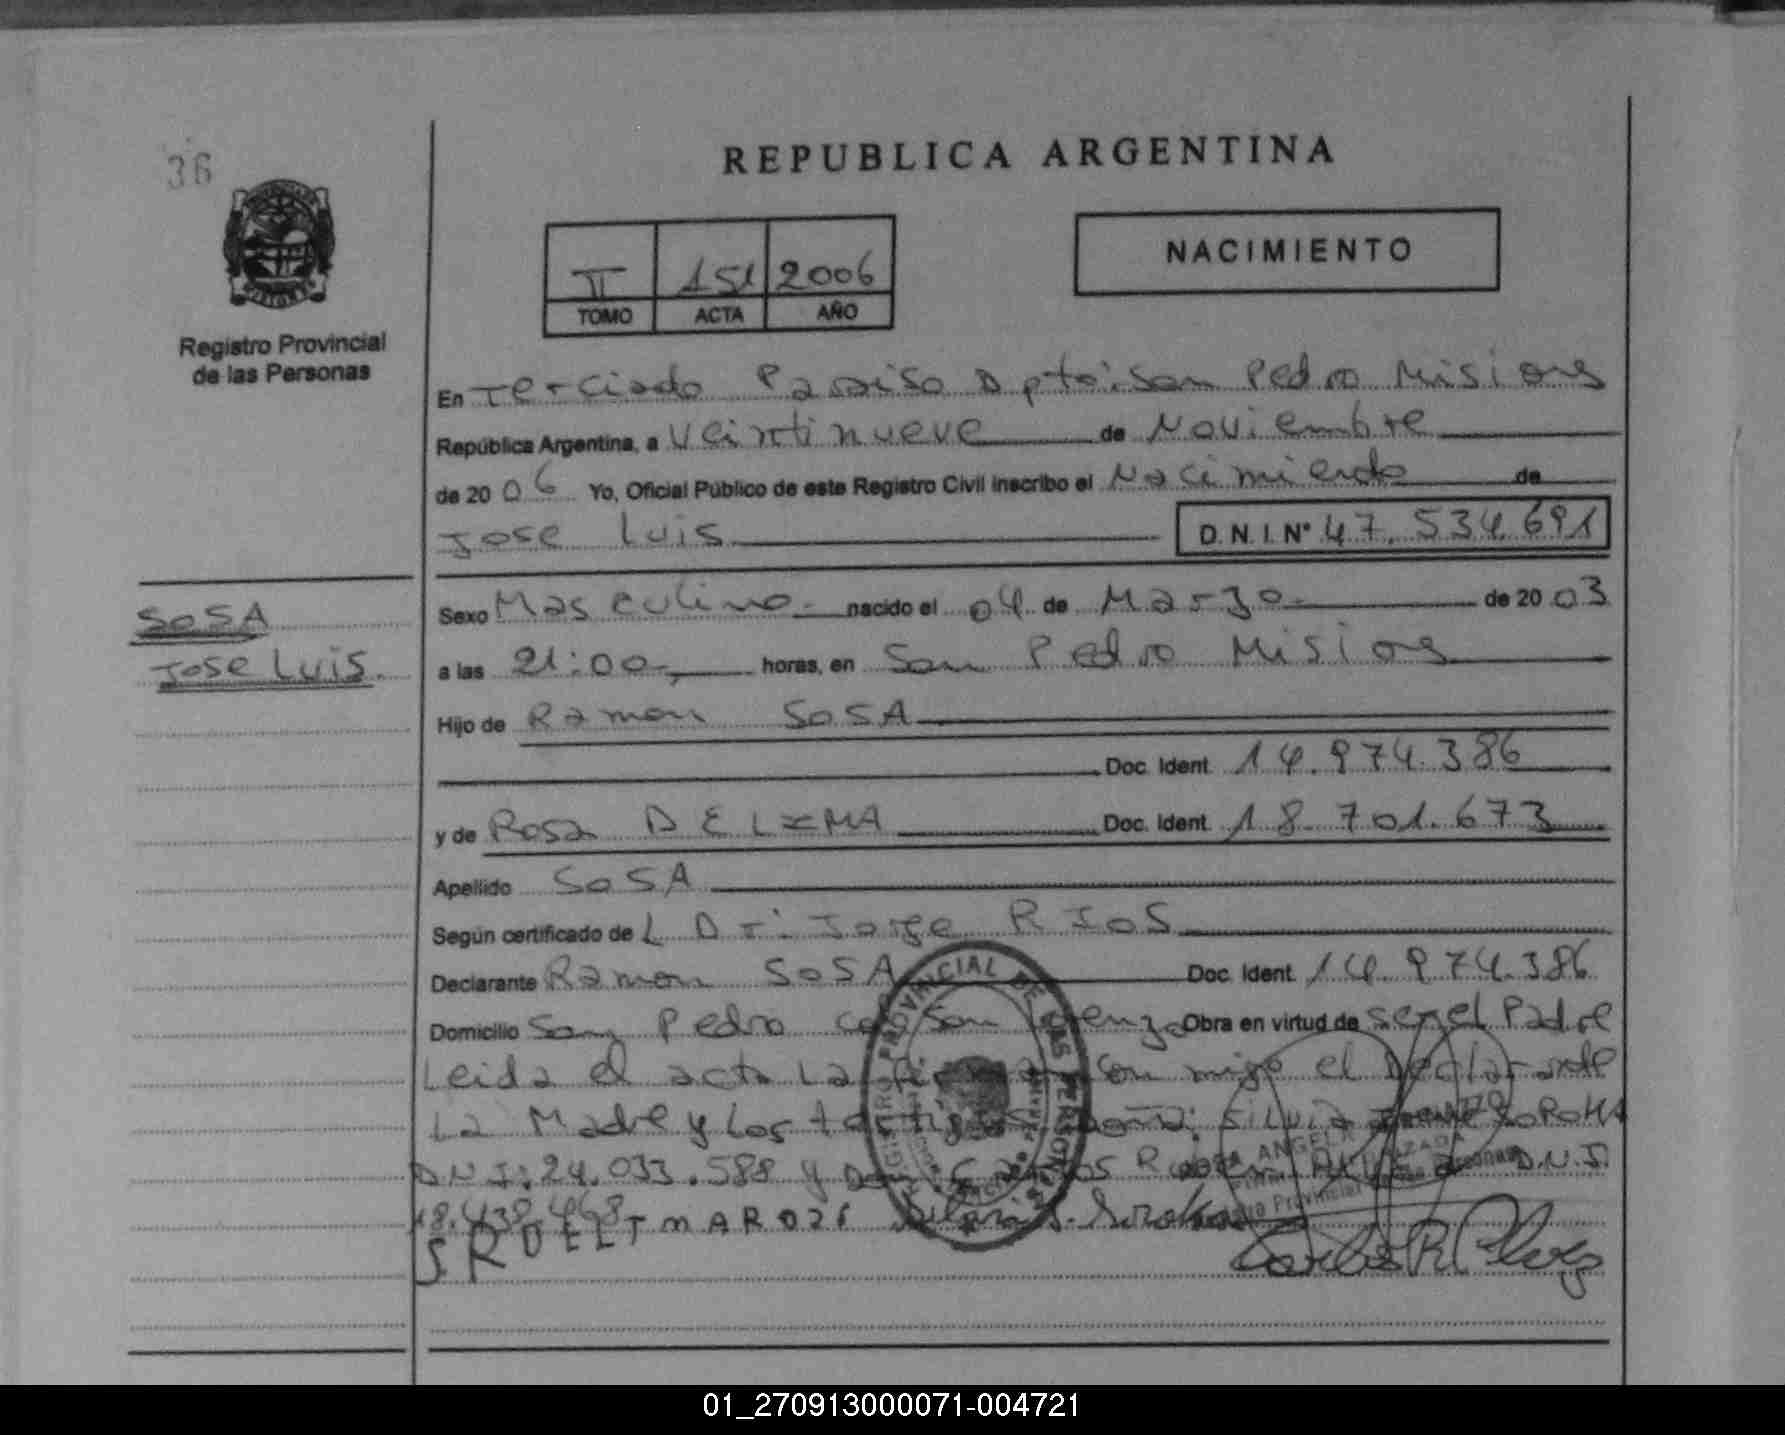 36
REPUBLICA ARGENTINA
II 151 2006
TOMO ACTA AÑO
NACIMIENTO
Registro Provincial
de las Personas
En Terciado Paraiso Dpto: San Pedro Misiones
República Argentina, a Veintinueve de Noviembre
de 2006 Yo, Oficial Público de este Registro Civil inscribo el Nacimiento de
Jose Luis
D.N.I. N° 47.534.691
SOSA
Jose Luis.
Sexo Masculino nacido el 04 de Marzo de 2003
a las 21:00 horas, en San Pedro Misiones
Hijo de Ramon SOSA
Doc. Ident. 14.974.386
y de Rosa DE LIMA Doc. Ident. 18.701.673
Apellido SOSA
Según certificado de L Dr: Jorge RIOS
Declarante Ramon SOSA Doc. Ident. 14.974.386
Domicilio San Pedro San Obra en virtud de ser el Padre
Leida el acta La con migo el Declarante
La Madre y Los testigos Doña: Silvia SOROKA
D.N.I: 24.033.588 y Don Carlos D.N.I.
18.438.468
REGISTRO PROVINCIAL DE LAS PERSONAS
Carlos R.
01_270913000071-004721